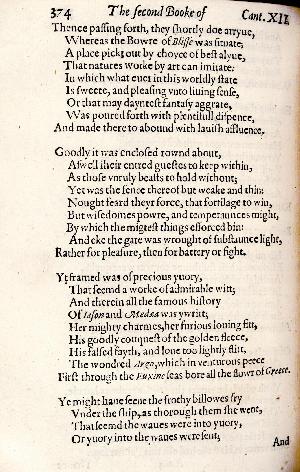 374 The second Booke of Cant. XII.
Thence passing forth, they shortly doe arryue,
Whereas the Bowre of Blisse was situate;
A place pickt out by choyce of best alyue,
That natures worke by art can imitate:
In which what euer in this worldly state
Is sweete, and pleasing vnto liuing sense,
Or that may dayntest fantasy aggrate,
Was poured forth with plentifull dispence,
And made there to abound with lauish affluence.
Goodly it was enclosed rownd about,
Aswell their entred guestes to keep within,
As those vnruly beasts to hold without;
Yet was the fence thereof but weake and thin:
Nought feard theyr force, that fortilage to win,
But wisedomes powre, and temperaunces might,
By which the mightest things efforced bin:
And eke the gate was wrought of substaunce light,
Rather for pleasure, then for battery or fight.
Yt framed was of precious yuory,
That seemd a worke of admirable witt;
And therein all the famous history
Of Iason and Medæa was ywritt;
Her mighty charmes, her furious louing fitt,
His goodly conquest of the golden fleece,
His falsed fayth, and loue too lightly flitt,
The wondred Argo, which in venturous peece
First through the Euxine seas bore all the flowr of Greece.
Ye might haue seene the frothy billowes fry
Vnder the ship, as thorough them she went,
That seemd the waues were into yuory,
Or yuory into the waues were sent;
And